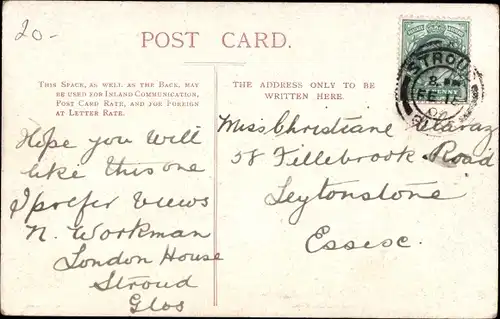 20-
POST CARD.
THIS SPACE, AS WELL AS THE BACK, MAY
BE USED FOR INLAND COMMUNICATION,
POST CARD RATE, AND FOR FOREIGN
AT LETTER RATE.
THE ADDRESS ONLY TO BE
WRITTEN HERE.
Hope you will
like this one
I prefer views
N. Workman
London House
Stroud
Glos
Miss Christiane
58 Fillebrook Road
Leytonstone
Essex.
STROUD